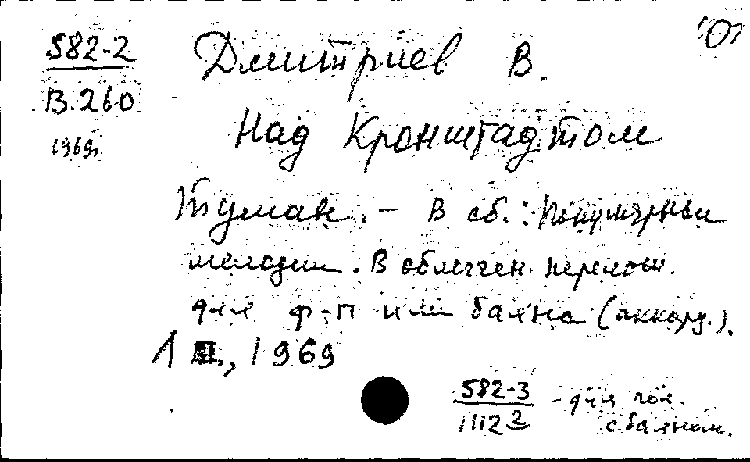 582-2
В.260
1969г.
Дмитриев В.
Над Кронштадтом
туман. - В сб.: Популярные
мелодии. В облегчен. перелож.
для ф-п или баяна (аккорд.).
1969
582-3
- для гол.
с баяном.